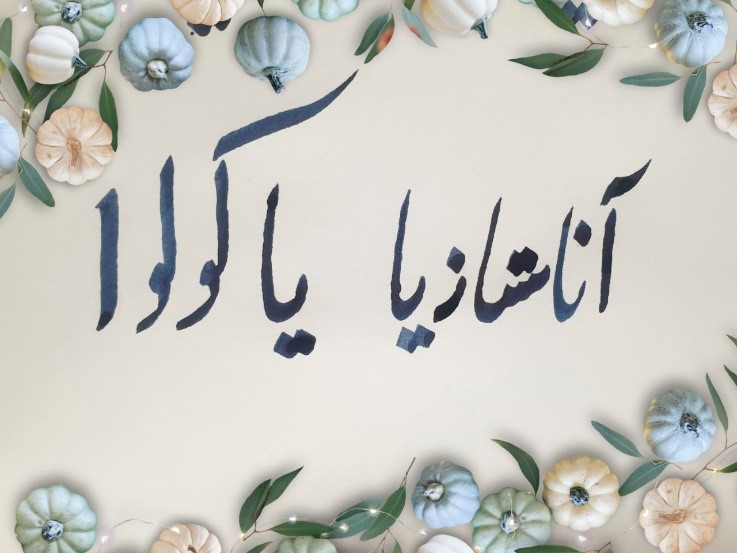 آناستازیا یاکولوا